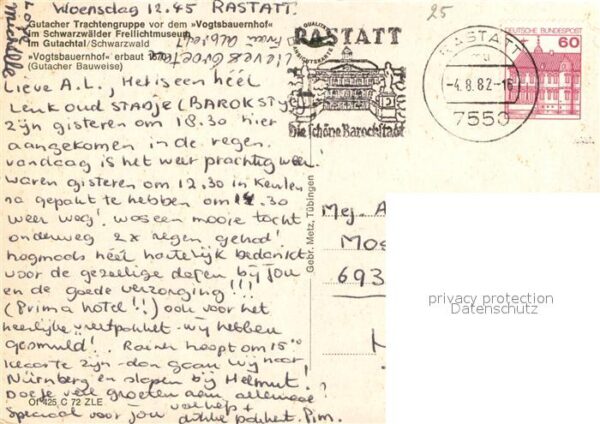 Woensdag 12.45 RASTATT.
Gutacher Trachtengruppe vor dem »Vogtsbauernhof«
im Schwarzwälder Freilichtmuseum
Im Gutachtal/Schwarzwald
»Vogtsbauernhof« erbaut
(Gutacher Bauweise)
Love
Michelle
Lieve A.L., Het is een héél
Leuk oud STADJE (BAROKSTYL
zijn gisteren om 18.30 hier
aangekomen in de regen.
vandaag is het weer prachtig weer.
waren gisteren om 12.30 in Keulen
na gepakt te hebben om 14.30
weer weg! was een mooie tocht
onderweg 2x regen gehad!
nogmaals héél hartelijk bedankt
voor de gezellige dagen bij jou
en de goede verzorging!!!
(Prima hotel!!) ook voor het
heerlijke vreetpakket - wij hebben
gesmuld! Rainer hoopt om 15⁰⁰
klaar te zijn - dan gaan wij naar
Nürnberg en slapen bij Helmut!
Doe je veel groeten aan allemaal
Speciaal voor jou
dikke pakket. Pim.
Of 425 C 72 ZLE
Gebr. Metz, Tübingen
25
RASTATT
Die schöne Barockstadt
RASTATT
-4.8.82-16
7550
DEUTSCHE BUNDESPOST
60
Mej. A
Moe
693
privacy protection
Datenschutz